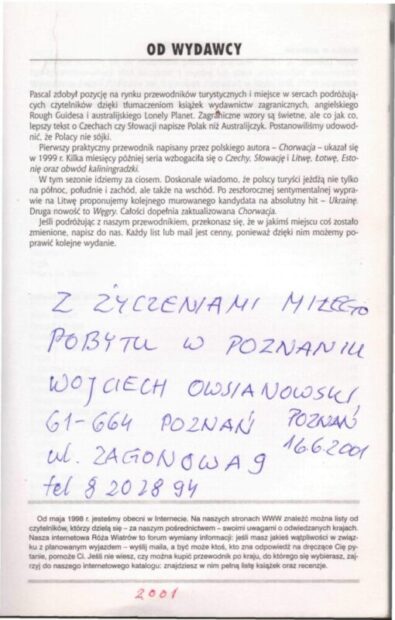 OD WYDAWCY
Pascal zdobył pozycję na rynku przewodników turystycznych i miejsce w sercach podróżują-
cych czytelników dzięki tłumaczeniom książek wydawnictw zagranicznych, angielskiego
Rough Guidesa i australijskiego Lonely Planet. Zagraniczne wzory są świetne, ale co jak co,
lepszy tekst o Czechach czy Słowacji napisze Polak niż Australijczyk. Postanowiliśmy udowod-
nić, że Polacy nie sójki.
Pierwszy praktyczny przewodnik napisany przez polskiego autora – Chorwacja – ukazał się
w 1999 r. Kilka miesięcy później seria wzbogaciła się o Czechy, Słowację i Litwę, Łotwę, Esto-
nię oraz obwód kaliningradzki.
W tym sezonie idziemy za ciosem. Doskonale wiadomo, że polscy turyści jeżdżą nie tylko
na północ, południe i zachód, ale także na wschód. Po zeszłorocznej sentymentalnej wypra-
wie na Litwę proponujemy kolejnego murowanego kandydata na absolutny hit – Ukrainę.
Druga nowość to Węgry. Całości dopełnia zaktualizowana Chorwacja.
Jeśli podróżując z naszym przewodnikiem, przekonasz się, że w jakimś miejscu coś zostało
zmienione, napisz do nas. Każdy list lub mail jest cenny, ponieważ dzięki nim możemy po-
prawić kolejne wydanie.
Z ŻYCZENIAMI MIŁEGO
POBYTU W POZNANIU
WOJCIECH OWSIANOWSKI
61-664 POZNAŃ POZNAŃ
ul. ZAGONOWA 9 16.6.2001
tel 8 20 28 94
Od maja 1998 r. jesteśmy obecni w Internecie. Na naszych stronach WWW znaleźć można listy od
czytelników, którzy dzielą się – za naszym pośrednictwem – swoimi uwagami o odwiedzanych krajach.
Nasza internetowa Róża Wiatrów to forum wymiany informacji: jeśli masz jakieś wątpliwości w zwią-
zku z planowanym wyjazdem – wyślij maila, a być może ktoś, kto zna odpowiedź na dręczące Cię py-
tanie, pomoże Ci. Jeśli nie wiesz, czy można kupić przewodnik po kraju, do którego się wybierasz, zaj-
rzyj do naszego internetowego katalogu: znajdziesz w nim pełną listę książek oraz recenzje.
2001